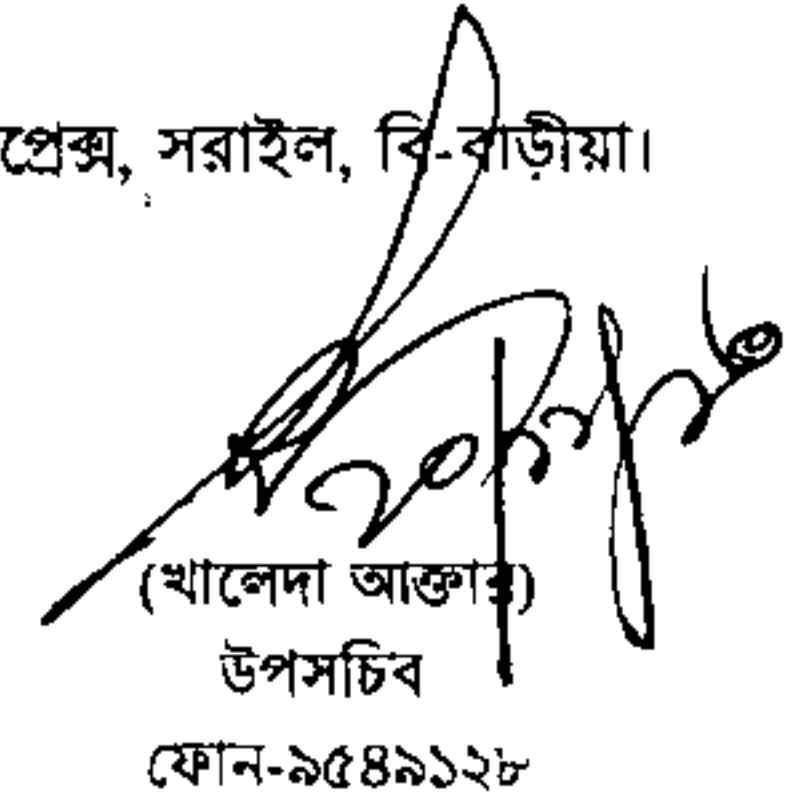 প্লেক্স, সরাইল, বি-বাড়ীয়া।
(খালেদা আক্তার)
উপসচিব
ফোন-৯৫৪৯১২৮